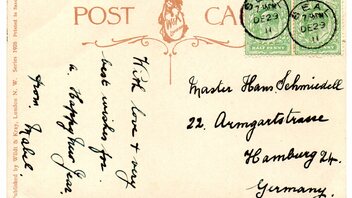 POST CA
DE 29
11
DE 29
11
HALF PENNY
With love & very
best wishes for
a Happy New Year
from Mabel.
Master Hans Schmiedell
22. Armgartstrasse
Hamburg 24.
Germany.
Published by Wildt & Kray, London N. W. Series 1025 Printed in